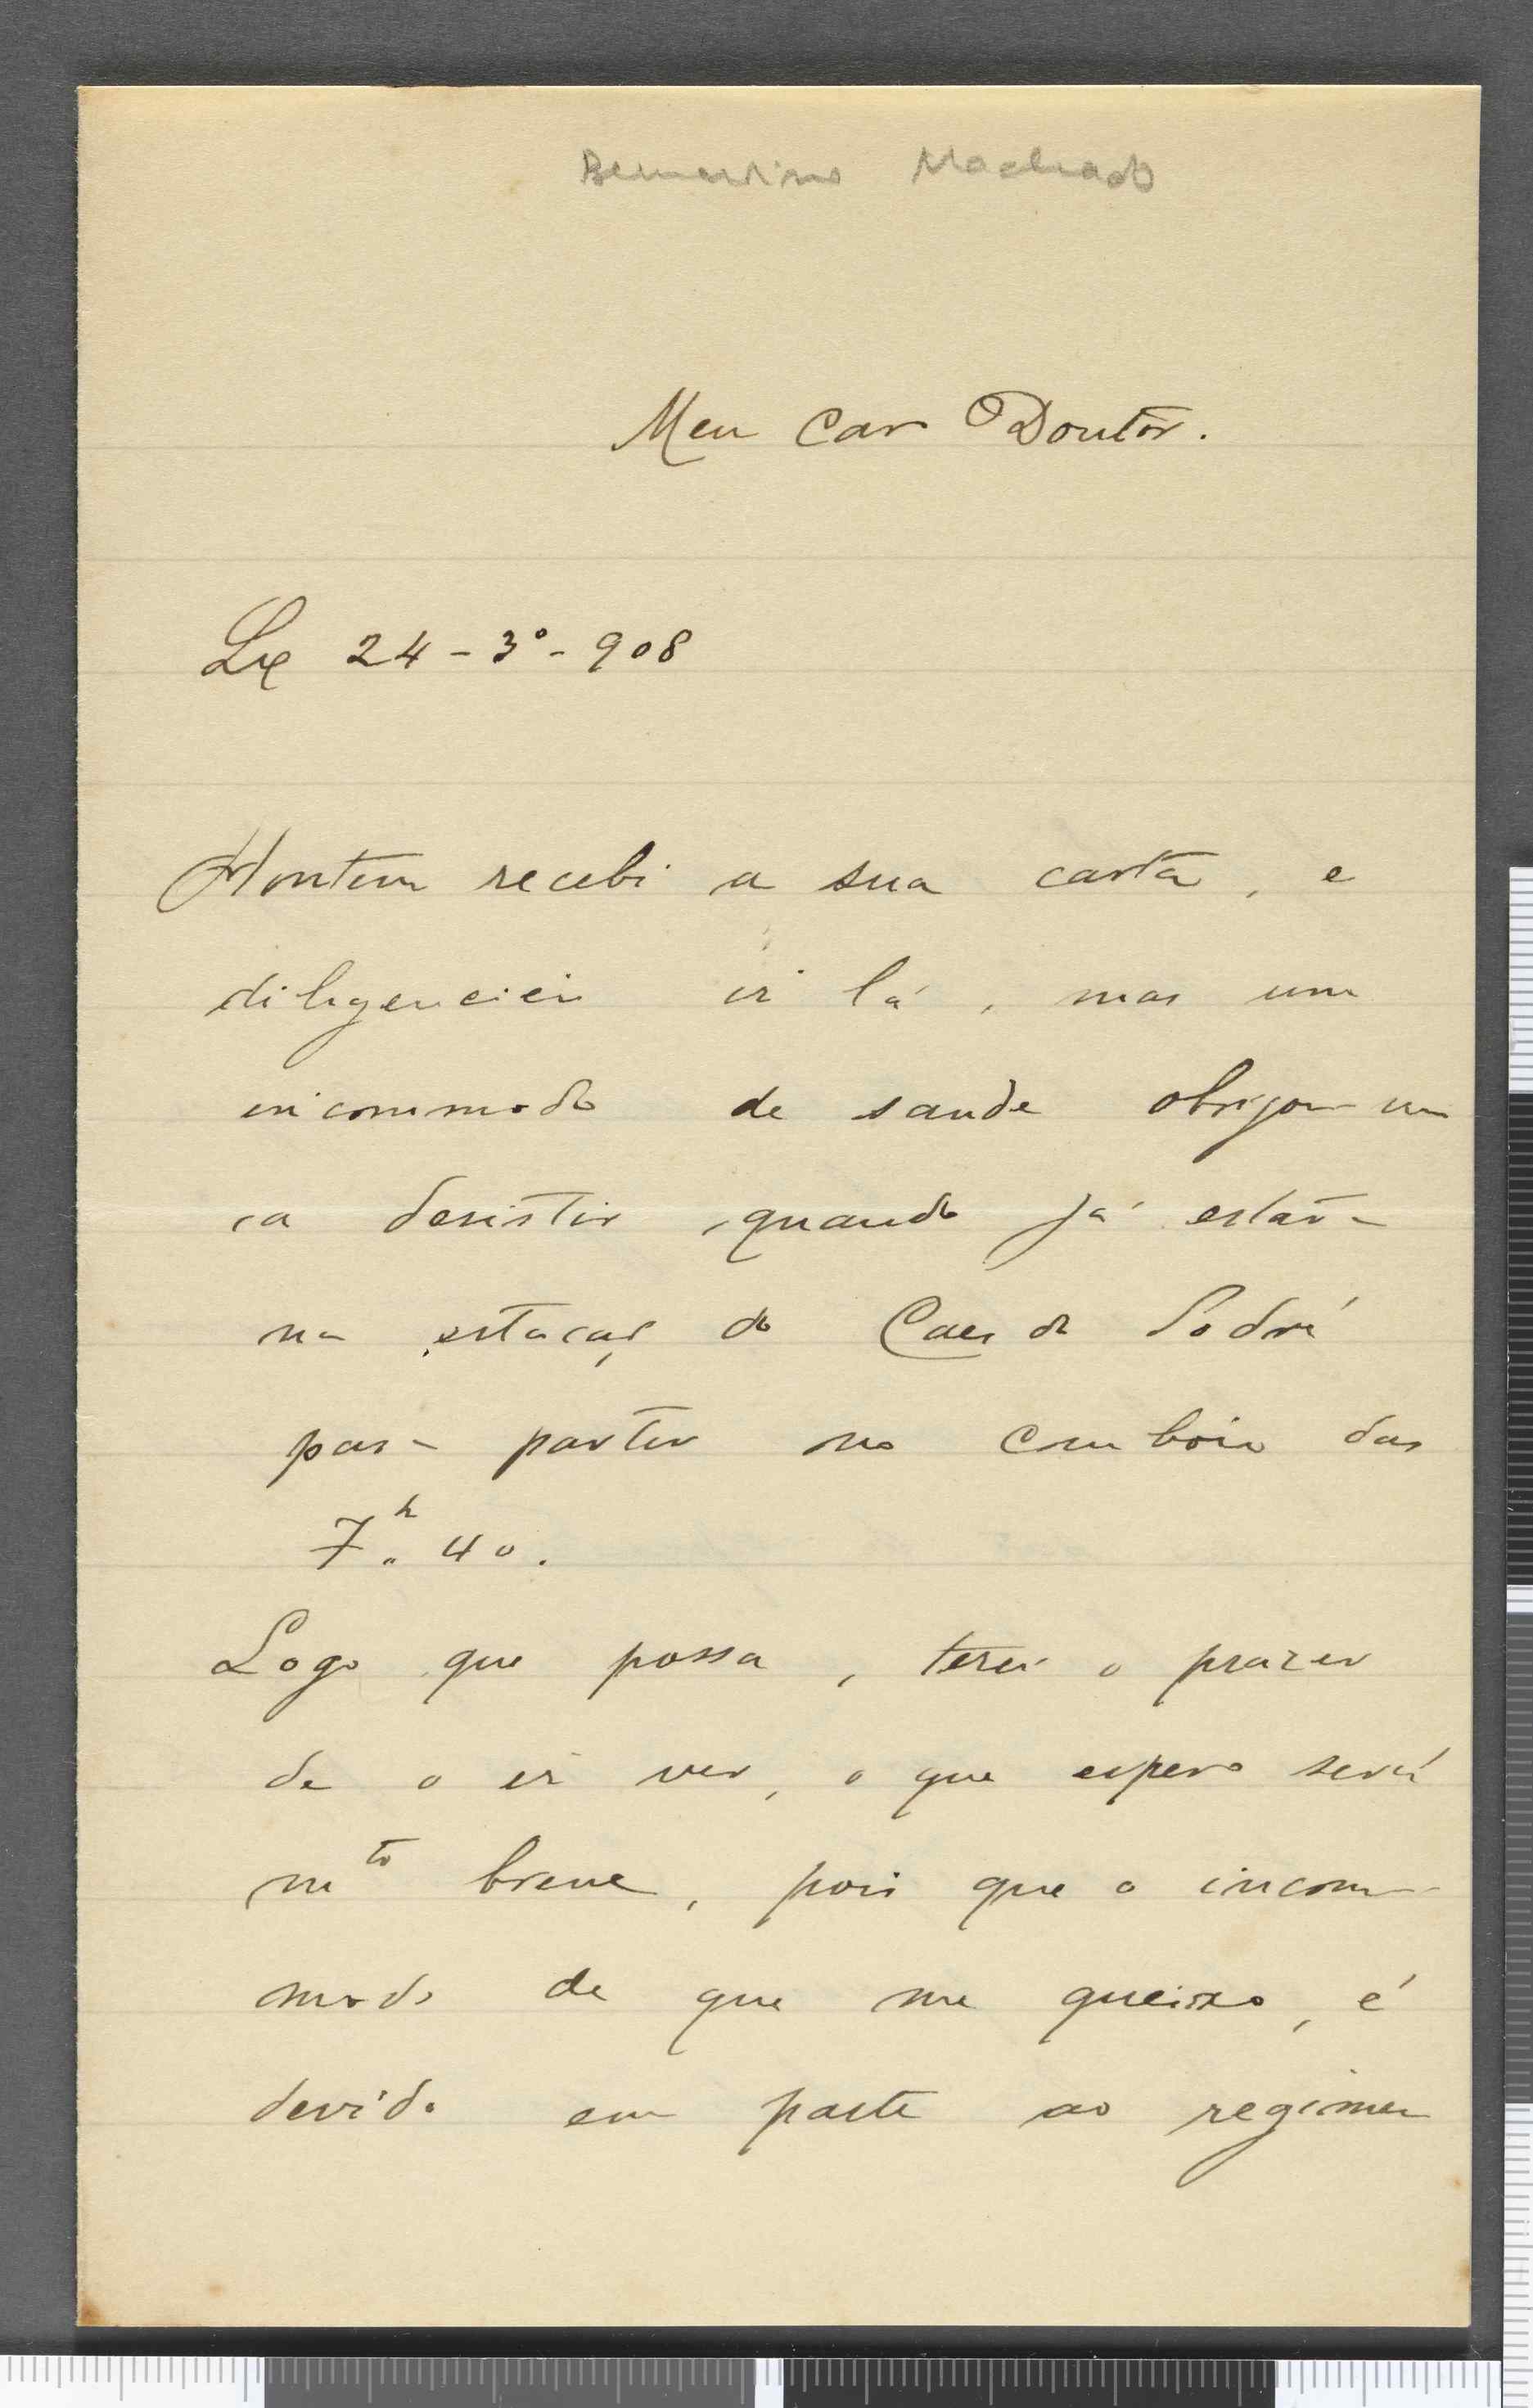 Bernardino Machado
Meu Caro Doutor.
Lx 24-3º-908
Hontem recebi a sua carta, e
diligenciei ir lá, mas um
incommodo de saude obrigou-me
a desistir quando já estava
na estação do Caes do Sodré
para partir no comboio das
7.h 40.
Logo que possa, terei o prazer
de o ir ver, o que espero será
mto breve, pois que o incom-
modo de que me queixo, é
devido em parte ao regimen